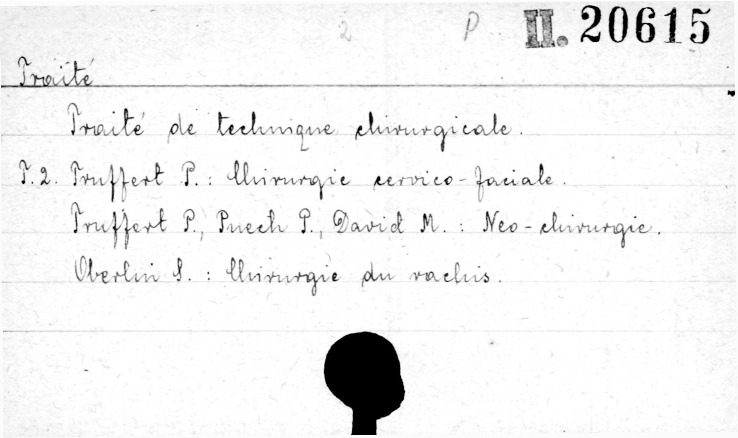 2 P II. 20615
Traité
Traité de technique chirurgicale.
T.2. Truffert P.: Chirurgie cervico-faciale.
Truffert P., Puech P., David M.: Neo-chirurgie.
Oberlin S.: Chirurgie du rachis.